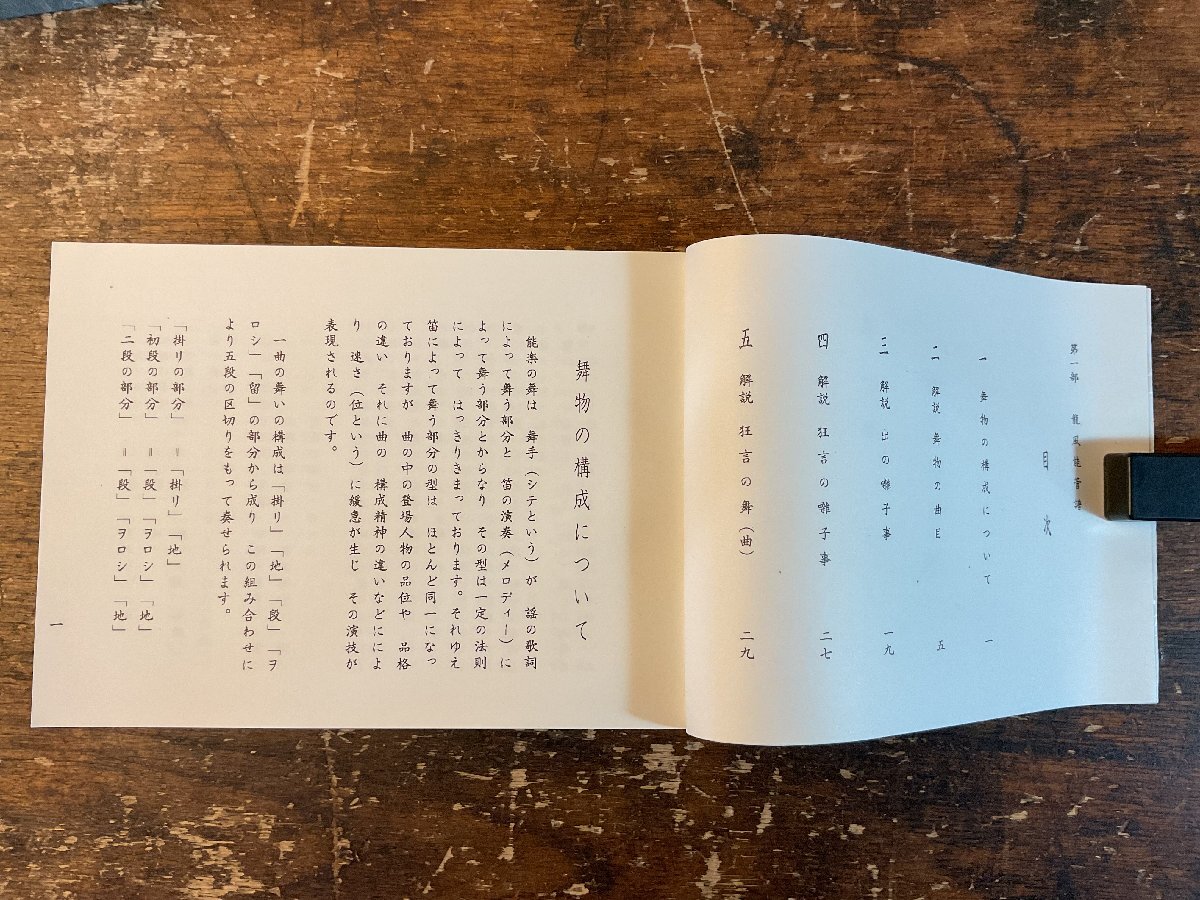 第一部 龍風能管譜
目次
一 舞物の構成について 一
二 解説 舞物の曲目 五
三 解説 出の囃子事 一九
四 解説 狂言の囃子事 二七
五 解説 狂言の舞(曲) 二九
舞物の構成について
能楽の舞は 舞手(シテという)が 謡の歌詞
によって舞う部分と 笛の演奏(メロディー)に
よって舞う部分とからなり その型は一定の法則
によって はっきりきまっております。それゆえ
笛によって舞う部分の型は ほとんど同一になっ
ておりますが 曲の中の登場人物の品位や 品格
の違い それに曲の 構成精神の違いなどにによ
り 速さ(位という)に緩急が生じ その演技が
表現されるのです。
一曲の舞いの構成は「掛リ」「地」「段」「ヲ
ロシ」「留」の部分から成り この組み合わせに
より五段の区切りをもって奏せられます。
「掛リの部分」=「掛リ」「地」
「初段の部分」=「段」「ヲロシ」「地」
「二段の部分」=「段」「ヲロシ」「地」
一